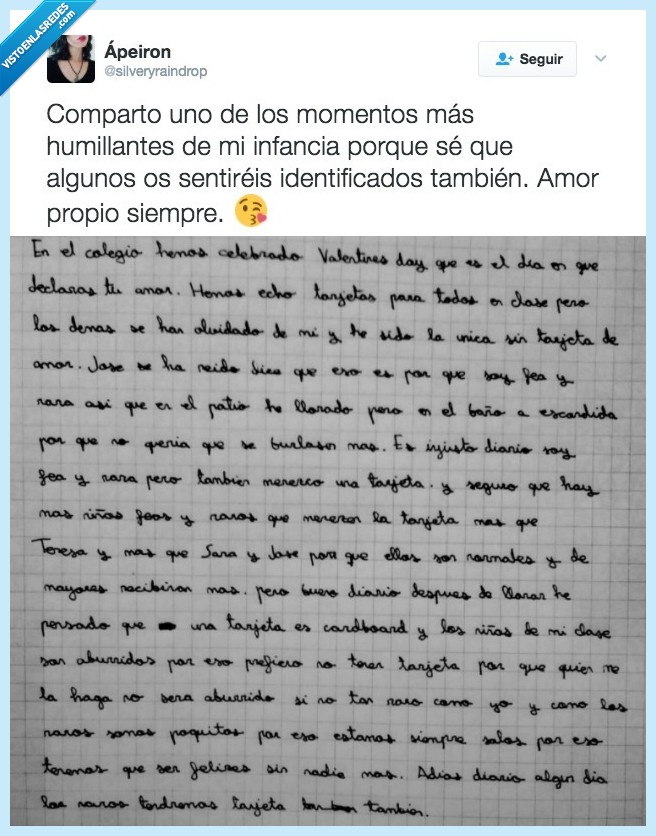 VISTOENLASREDES
.com
Ápeiron
@silveryraindrop
Seguir
Comparto uno de los momentos más
humillantes de mi infancia porque sé que
algunos os sentiréis identificados también. Amor
propio siempre. 😘
En el colegio hemos celebrado Valentines day que es el dia en que
declaras tu amor. Hemos echo tarjetas para todos en clase pero
los demas se han olvidado de mi y he sido la unica sin tarjeta de
amor. Jose se ha reido dice que eso es por que soy fea y
rara asi que en el patio he llorado pero en el baño a escondida
por que no queria que se burlasen mas. Es injusto diario soy
fea y rara pero tambien merezco una tarjeta. y seguro que hay
mas niños feos y raros que merecen la tarjeta mas que
Teresa y mas que Sara y Jose porque ellos son normales y de
mayores reciviran mas. pero bueno diario despues de llorar he
pensado que una tarjeta es cardboard y los niños de mi clase
son aburridos por eso prefiero no tener tarjeta por que quien me
la haga no sera aburrido si no tan raro como yo y como los
raros somos poquitos por eso estamos siempre solos por eso
tenemos que ser felices sin nadie mas. Adios diario algun dia
los raros tendremos tarjeta tambien.